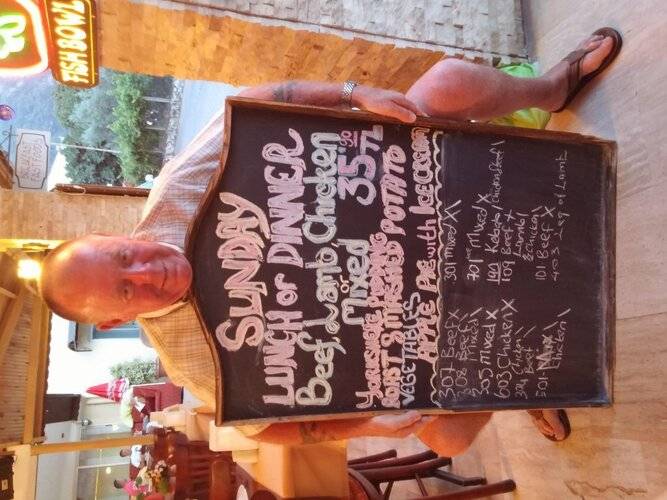 FISH BOWL
SUNDAY
LUNCH or DINNER
Beef, Lamb, Chicken
or
Mixed 35.90 TL
YORKSHIRE PUDDING
ROAST & MASHED POTATO
VEGETABLES
APPLE PIE with ICE CREAM
307 Beef X
308 Beef
Mixed \
505 Mixed X
603 Chicken X
304 Chicken \
Beef
501
Chicken \
301 Mixed X \
701 Mixed X
109 Beef X
Lamb /
& Chicken \
101 Beef X
403 Leg of Lamb